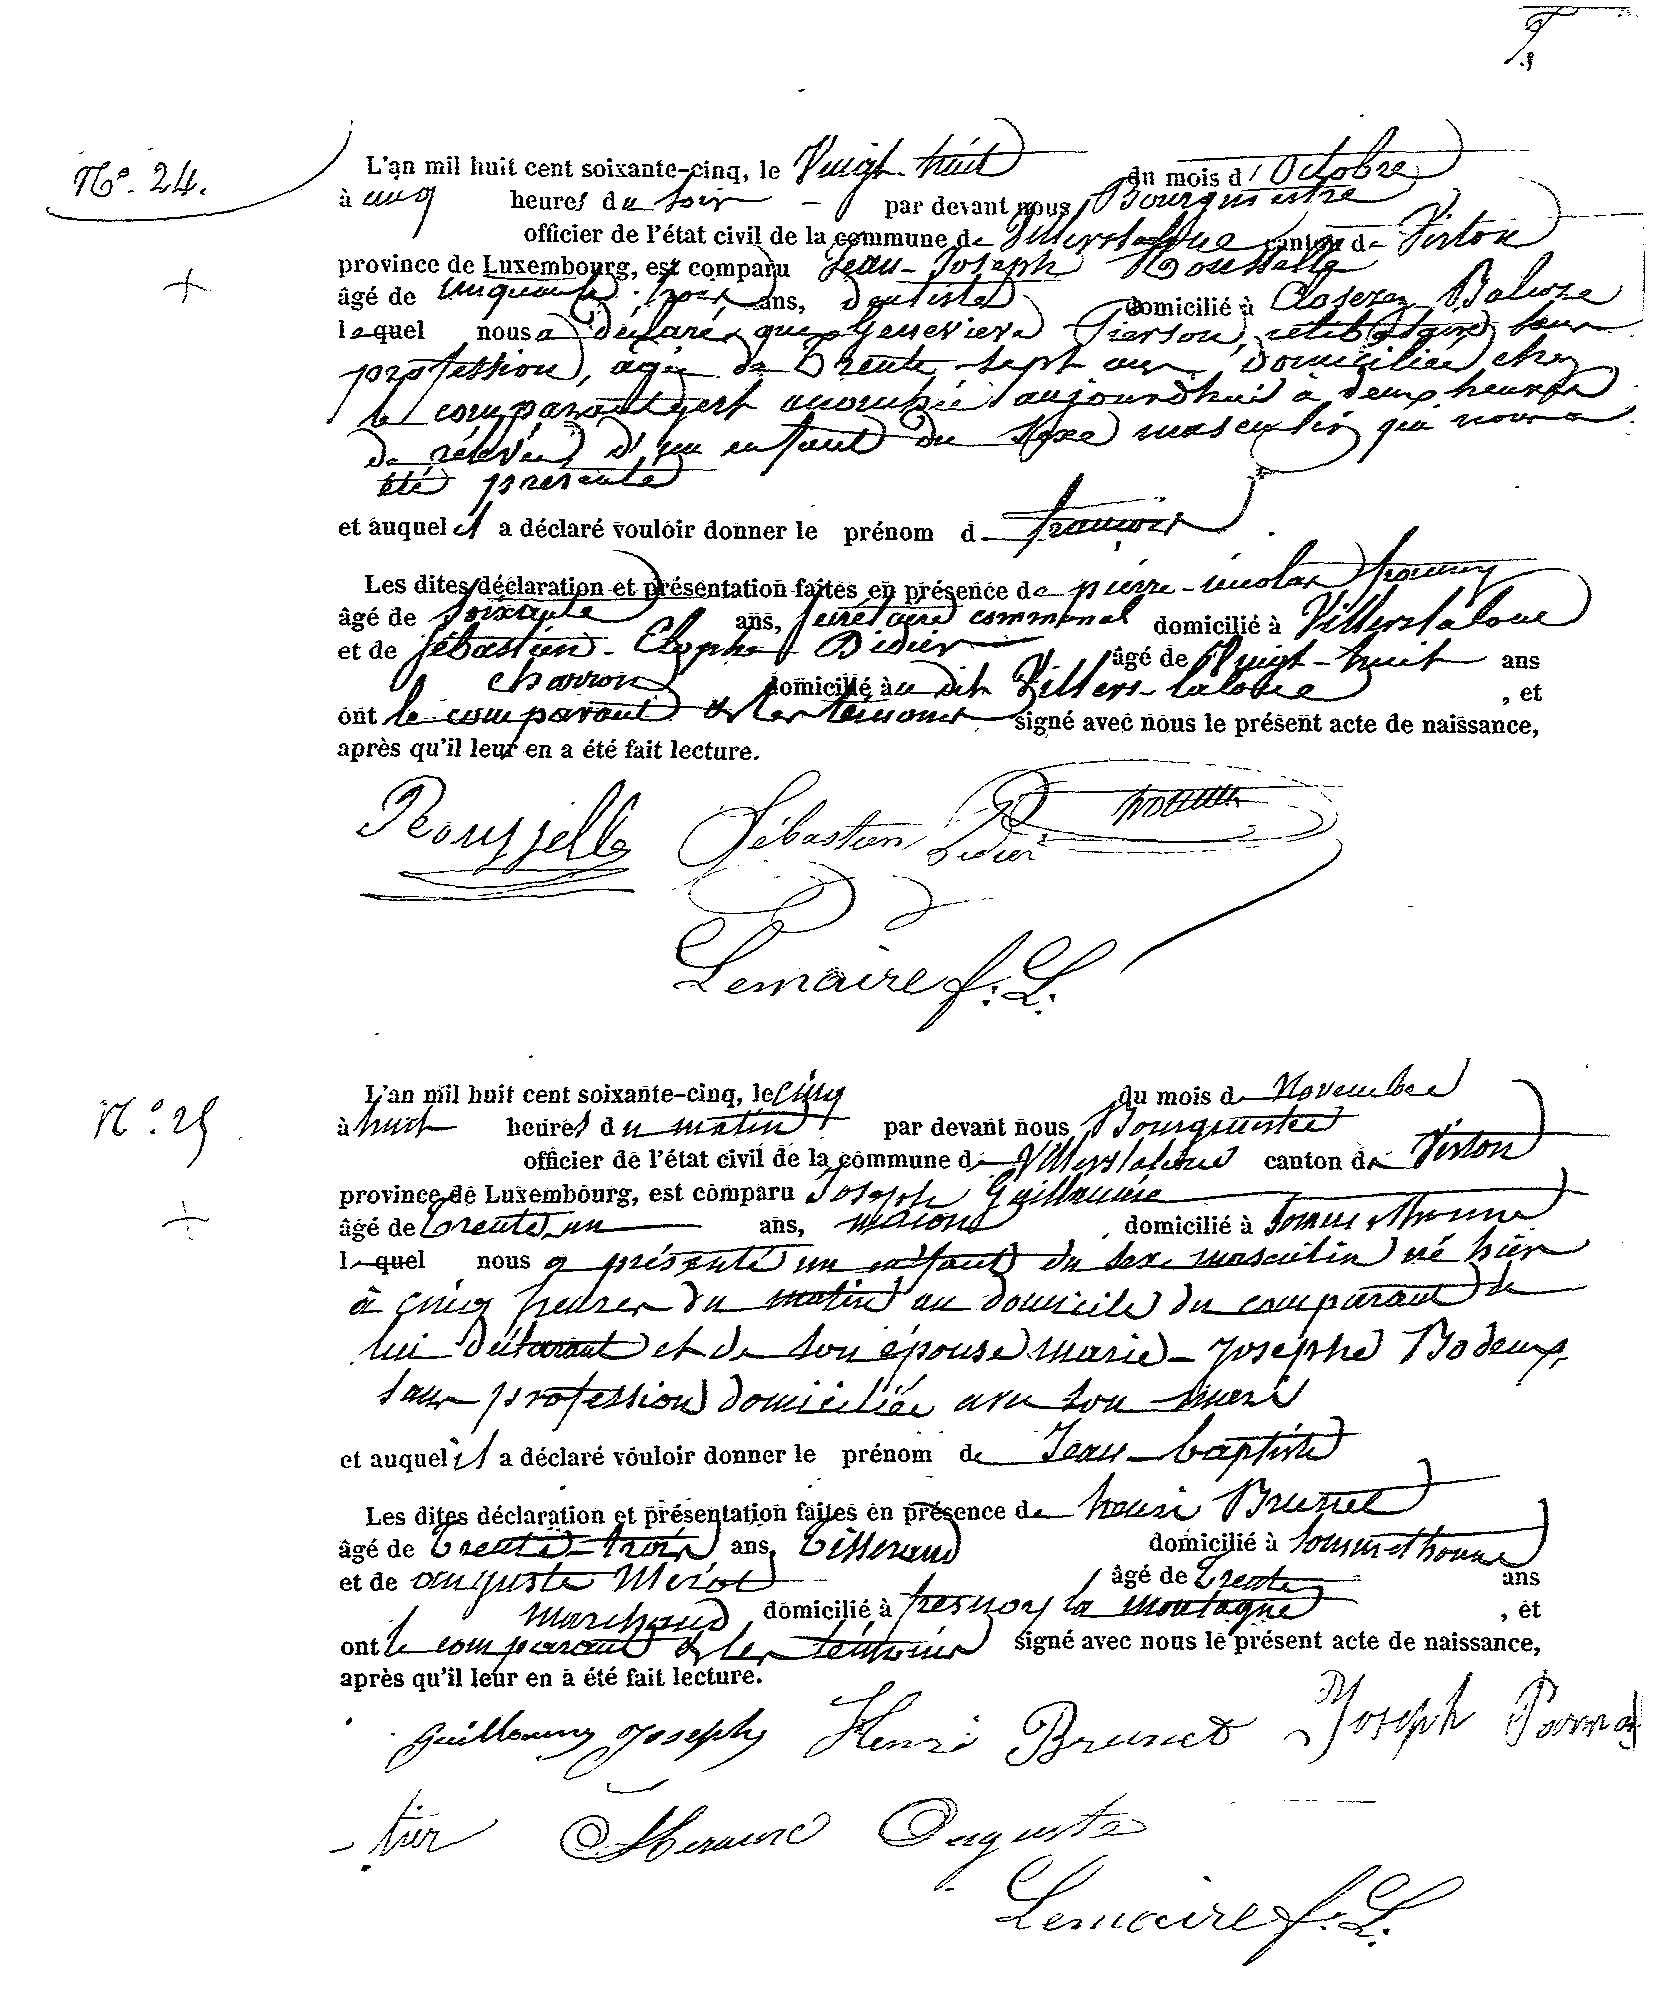 N.º 24.
L'an mil huit cent soixante-cinq, le Vingt-huit du mois d'Octobre
à cinq heures du soir par devant nous Bourgmestre
officier de l'état civil de la commune de Villerslaloue canton de Virton
province de Luxembourg, est comparu Jean-Joseph Rousselle
âgé de cinquante trois ans, dentiste domicilié à
lequel nous a déclaré que Genevieve Pierson, célibataire sans
profession, agée de Trente-sept ans, domiciliée chez
le comparant, est accouchée aujourd'hui à deux heures
de relevée d'un enfant du sexe masculin qui nous a
été présenté
et auquel il a déclaré vouloir donner le prénom de françois
Les dites déclaration et présentation faites en présence de pierre-nicolas
âgé de soixante ans, secrétaire communal domicilié à Villerslaloue
et de Sébastien-Elophe Didier âgé de Vingt-huit ans
charron domicilié au dit Villers-laloue, et
ont le comparant & les témoins signé avec nous le présent acte de naissance,
après qu'il leur en a été fait lecture.
Rousselle Sébastien Didier
Lemaire f. L.
N.º 25
L'an mil huit cent soixante-cinq, le cinq du mois de Novembre
à huit heures du matin par devant nous Bourgmestre
officier de l'état civil de la commune de Villerslaloue canton de Virton
province de Luxembourg, est comparu Joseph Guillaume
âgé de Trente-un ans, maçon domicilié à Sommethonne
lequel nous a présenté un enfant du sexe masculin né hier
à cinq heures du matin au domicile du comparant de
lui déclarant et de son épouse marie-Josephe Bodeux,
sans profession domiciliée avec son mari
et auquel il a déclaré vouloir donner le prénom de Jean-baptiste
Les dites déclaration et présentation faites en présence de henri Brunet
âgé de Trente-trois ans, Tisserand domicilié à Sommethonne
et de auguste âgé de Trente ans
marchand domicilié à fresnoy la montagne, et
ont le comparant & les témoins signé avec nous le présent acte de naissance,
après qu'il leur en a été fait lecture.
Guillaume Joseph Henri Brunet Joseph
tier Auguste
Lemaire f. L.